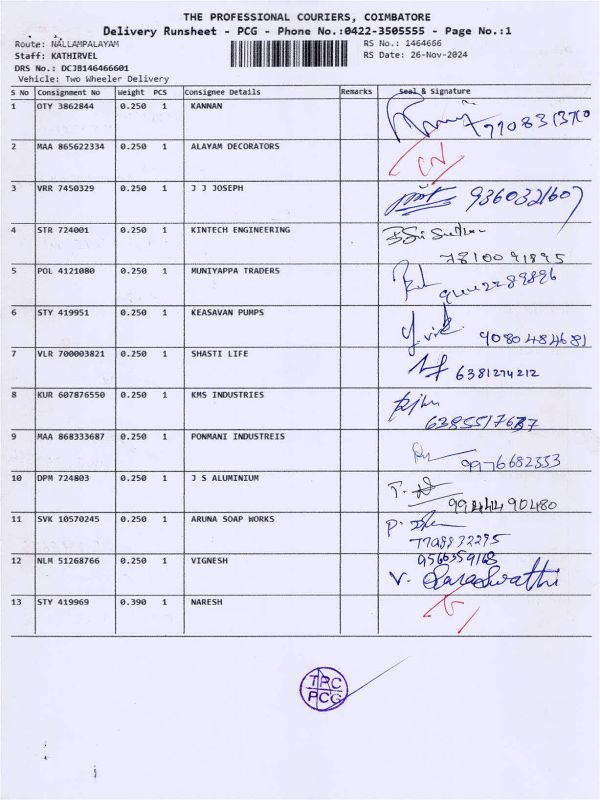 THE PROFESSIONAL COURIERS, COIMBATORE
Delivery Runsheet - PCG - Phone No.:0422-3505555 - Page No.:1
Route: NALLAMPALAYAM RS No.: 1464666
Staff: KATHIRVEL RS Date: 26-Nov-2024
DRS No.: DCJB146466601
Vehicle: Two Wheeler Delivery
S No Consignment No Weight PCS Consignee Details Remarks Seal & Signature
1 OTY 3862844 0.250 1 KANNAN
2 MAA 865622334 0.250 1 ALAYAM DECORATORS
3 VRR 7450329 0.250 1 J J JOSEPH 9360321607
4 STR 724001 0.250 1 KINTECH ENGINEERING
7810091895
5 POL 4121080 0.250 1 MUNIYAPPA TRADERS
6 STY 419951 0.250 1 KEASAVAN PUMPS
9080484681
7 VLR 700003821 0.250 1 SHASTI LIFE
6381274212
8 KUR 607876550 0.250 1 KMS INDUSTRIES
9 MAA 868333687 0.250 1 PONMANI INDUSTREIS
9976682353
10 DPM 724803 0.250 1 J S ALUMINIUM
9944490480
11 SVK 10570245 0.250 1 ARUNA SOAP WORKS
12 NLM 51268766 0.250 1 VIGNESH
V. Saraswathi
13 STY 419969 0.390 1 NARESH
TPC
PCG